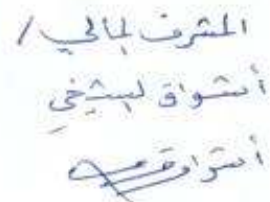 المشرف المالي /
أشواق الشيخي
أشواق